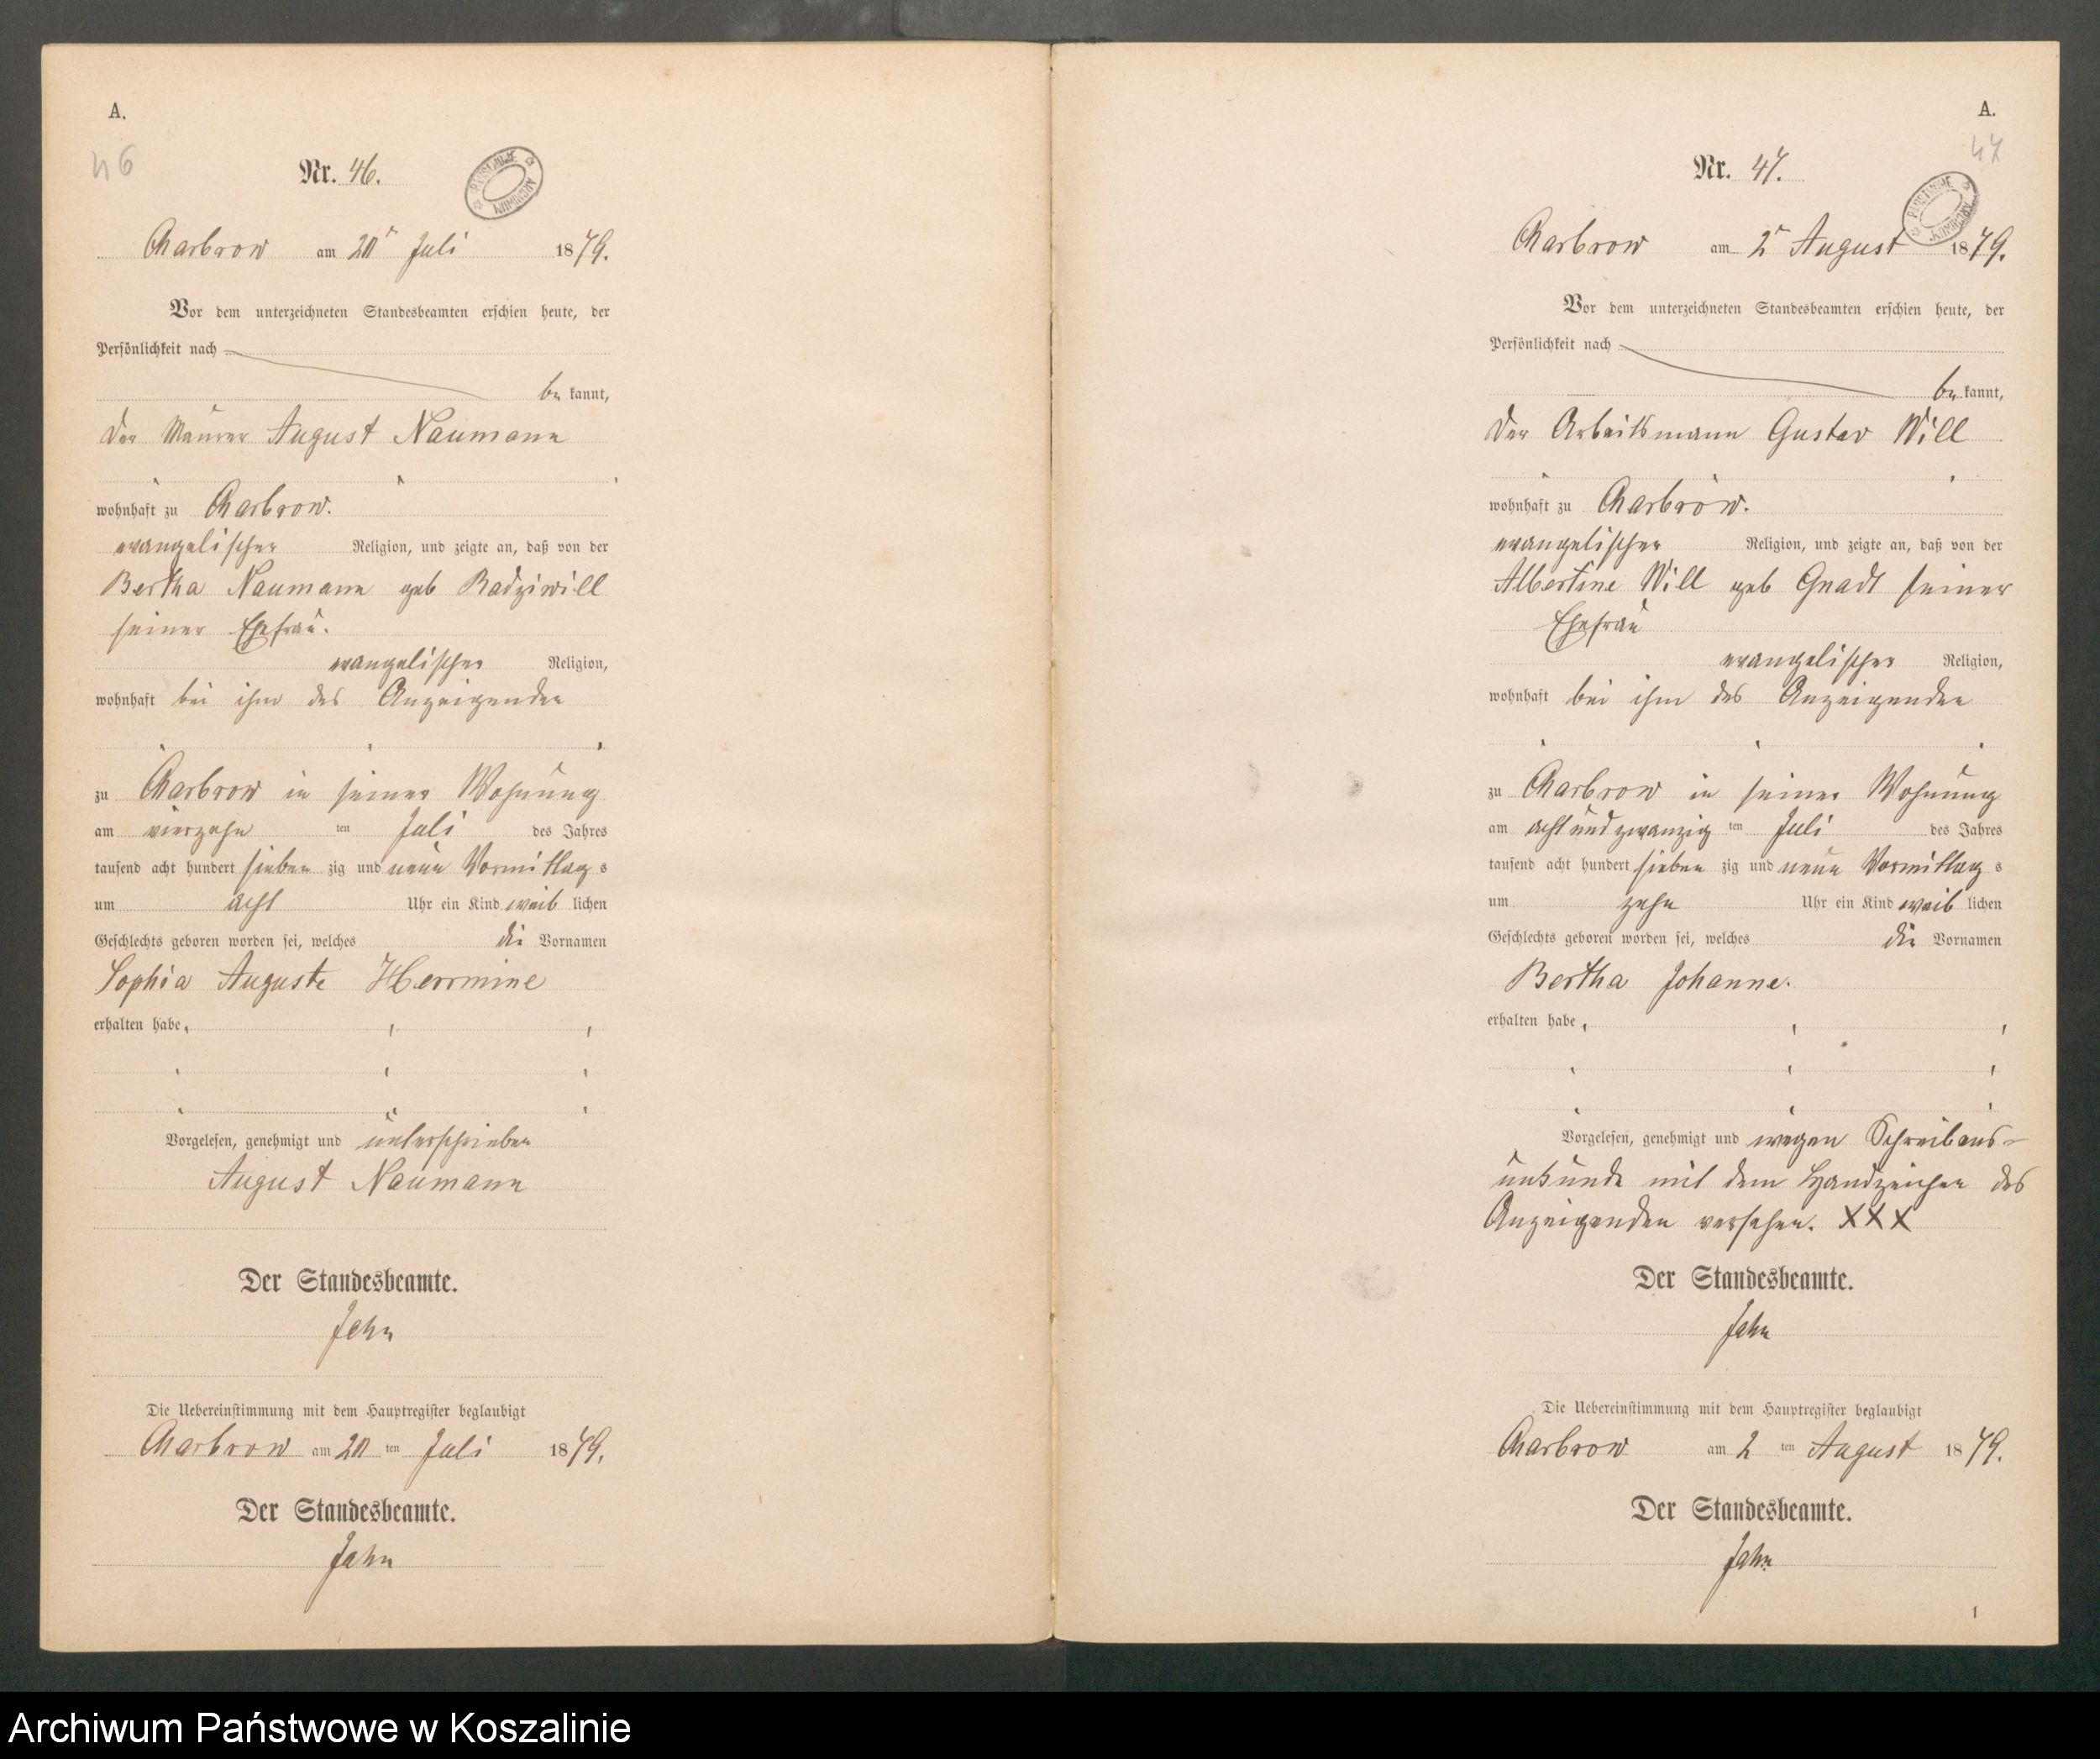 A.
46
Nr. 46.
PAŃSTWOWE ARCHIWUM
Charbrow am 20n Juli 1879.
Vor dem unterzeichneten Standesbeamten erschien heute, der
Persönlichkeit nach
be kannt,
der Maurer August Naumann
wohnhaft zu Charbrow.
evangelischer Religion, und zeigte an, daß von der
Bertha Naumann geb Radziwill
seiner Ehefrau.
evangelischer Religion,
wohnhaft bei ihm des Anzeigenden
zu Charbrow in seiner Wohnung
am vierzehn ten Juli des Jahres
tausend acht hundert sieben zig und neun Vormittag s
um acht Uhr ein Kind weib lichen
Geschlechts geboren worden sei, welches die Vornamen
Sophia Auguste Herrmine
erhalten habe
Vorgelesen, genehmigt und unterschrieben
August Naumann
Der Standesbeamte.
Jahn
Die Uebereinstimmung mit dem Hauptregister beglaubigt
Charbrow am 20 ten Juli 1879.
Der Standesbeamte.
Jahn
A.
47
Nr. 47.
PAŃSTWOWE ARCHIWUM
Charbrow am 2n August 1879.
Vor dem unterzeichneten Standesbeamten erschien heute, der
Persönlichkeit nach
be kannt,
der Arbeitsmann Gustav Will
wohnhaft zu Charbrow.
evangelischer Religion, und zeigte an, daß von der
Albertine Will geb Gnadt seiner
Ehefrau
evangelischer Religion,
wohnhaft bei ihm des Anzeigenden
zu Charbrow in seiner Wohnung
am acht und zwanzig ten Juli des Jahres
tausend acht hundert sieben zig und neun Vormittag s
um zehn Uhr ein Kind weib lichen
Geschlechts geboren worden sei, welches die Vornamen
Bertha Johanne.
erhalten habe
Vorgelesen, genehmigt und wegen Schreibens-
unkunde mit dem Handzeichen des
Anzeigenden versehen. XXX
Der Standesbeamte.
Jahn
Die Uebereinstimmung mit dem Hauptregister beglaubigt
Charbrow am 2 ten August 1879.
Der Standesbeamte.
Jahn
1
Archiwum Państwowe w Koszalinie